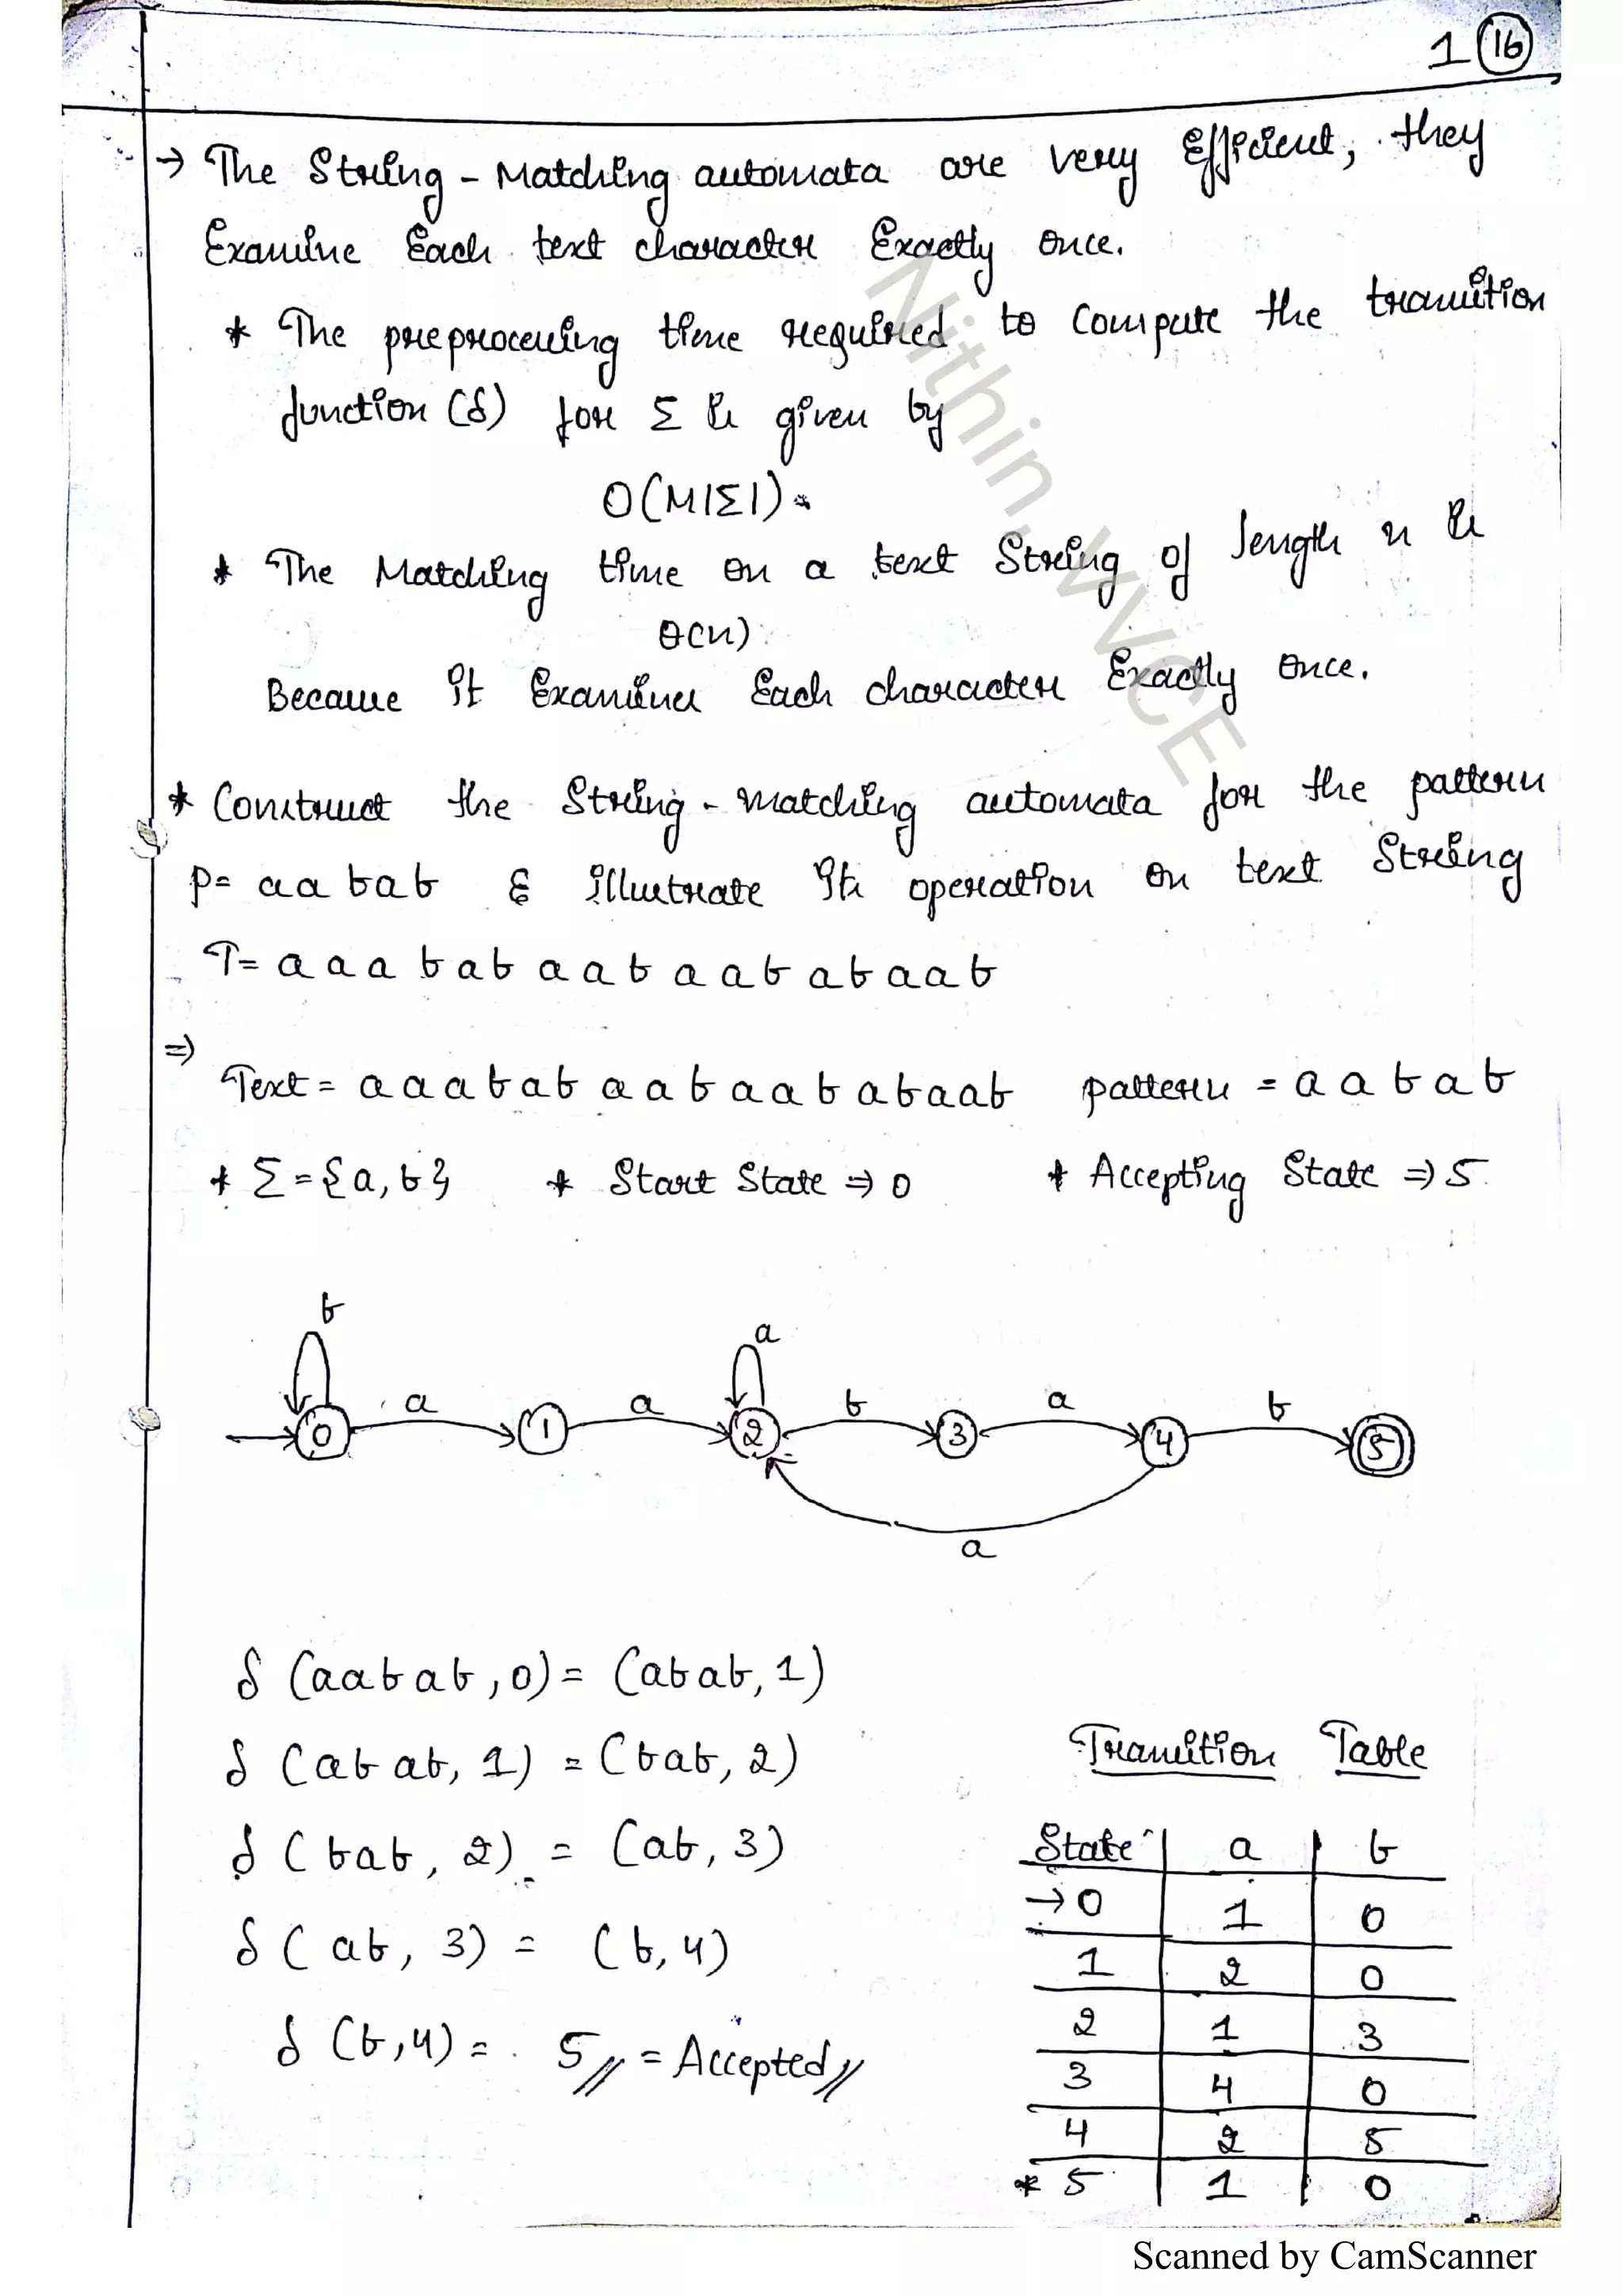 1 16
→ The String - Matching automata are very Efficient, they
Examine Each text character Exactly once.
* The preprocessing time required to compute the transition
function (δ) for Σ is given by
O(M|Σ|).
* The Matching time on a text String of length n is
θ(n)
Because it Examines Each character Exactly once.
* Construct the String - matching automata for the pattern
P= a a b a b & illustrate its operation on text String
T= a a a b a b a a b a a b a b a a b
⇒
Text = a a a b a b a a b a a b a b a a b pattern = a a b a b
* Σ = {a, b} * Start State ⇒ 0 * Accepting State ⇒ 5
b
a
a a b a b
0 1 2 3 4 5
a
δ (aabab, 0) = (abab, 1)
δ (abab, 1) = (bab, 2)
δ (bab, 2) = (ab, 3)
δ (ab, 3) = (b, 4)
δ (b, 4) = 5// = Accepted//
Transition Table
State a b
→ 0 1 0
1 2 0
2 1 3
3 4 0
4 2 5
* 5 1 0
Nithin, VVCE
Scanned by CamScanner